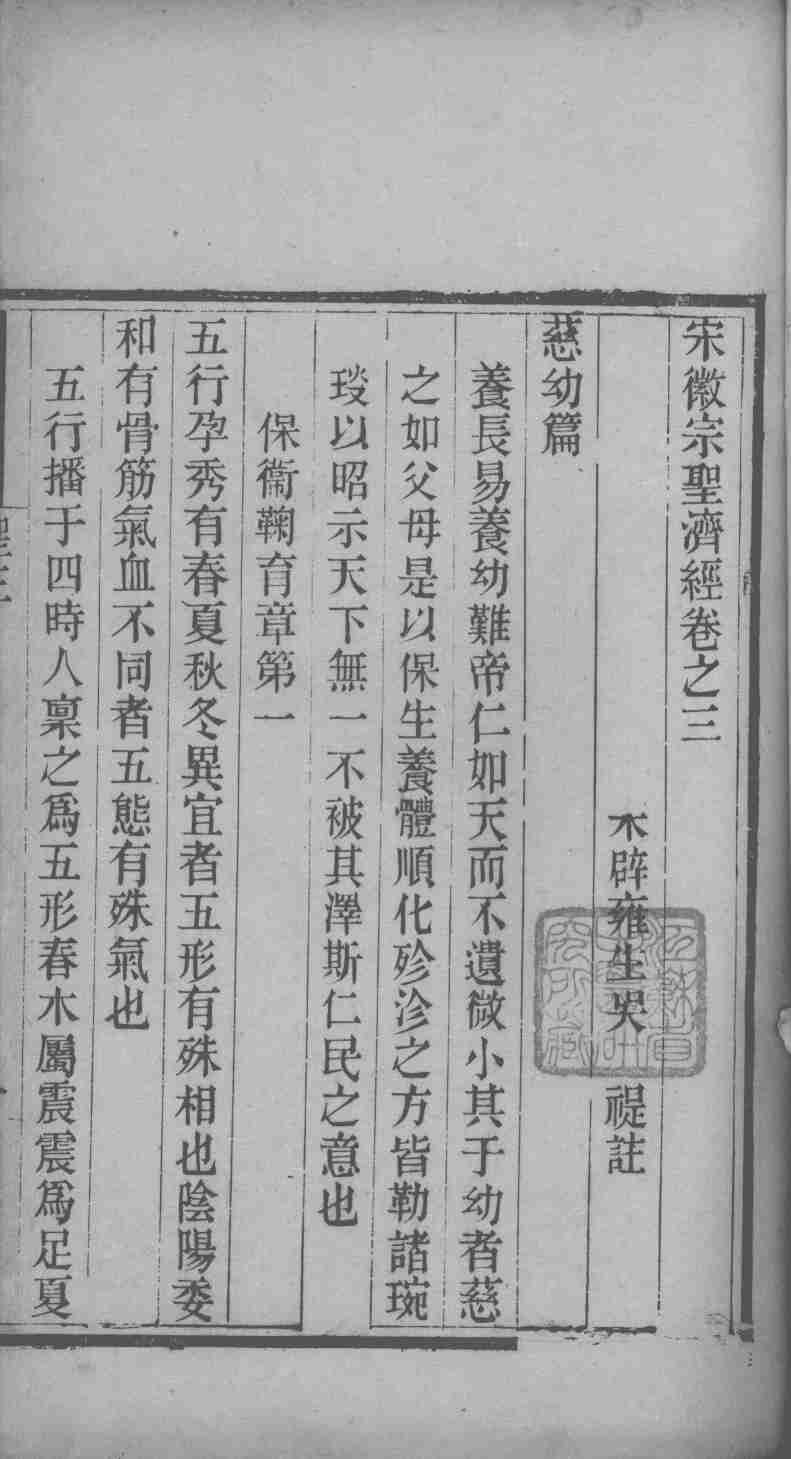 宋徽宗聖濟經卷之三
宋辟雍生吳　禔註
慈幼篇
養長易養幼難帝仁如天而不遺微小其于幼者慈
之如父母是以保生養體順化殄沴之方皆勒諸琬
琰以昭示天下無一不被其澤斯仁民之意也
保衞鞠育章第一
五行孕秀有春夏秋冬異宜者五形有殊相也陰陽委
和有骨筋氣血不同者五態有殊氣也
五行播于四時人稟之爲五形春木屬震震爲足夏